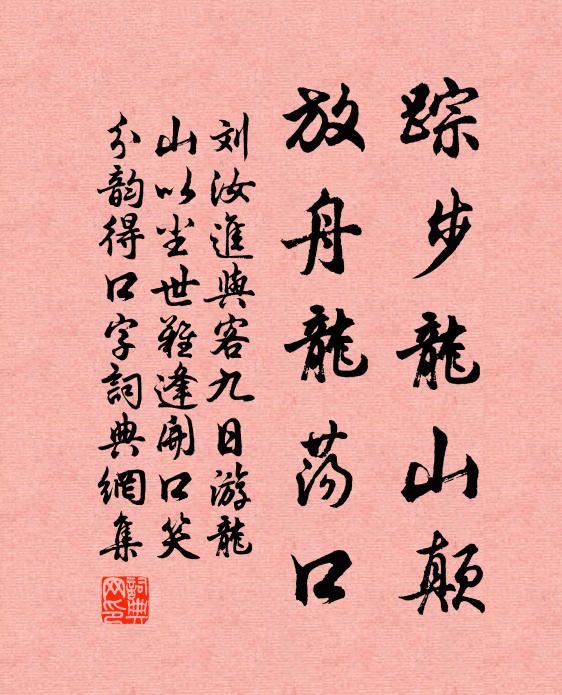 踪步龍山顛
放舟龍荡口
刘汝進與客九日游龍
山以尘世難逢開口笑
分韵得口字詞典網集
詞典網印